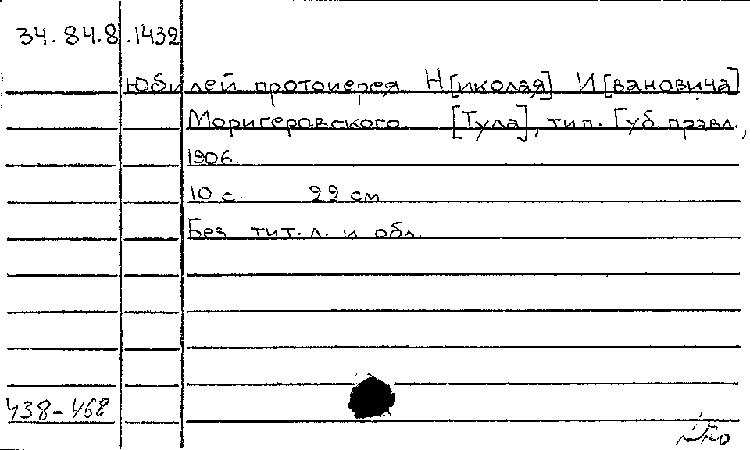 34.84.8.1432
Юбилей протоиерея Н[иколая] И[вановича]
Моригеровского. [Тула], тип. Губ. правл.,
1906.
10 с. 22 см.
Без тит. л. и обл.
438-468